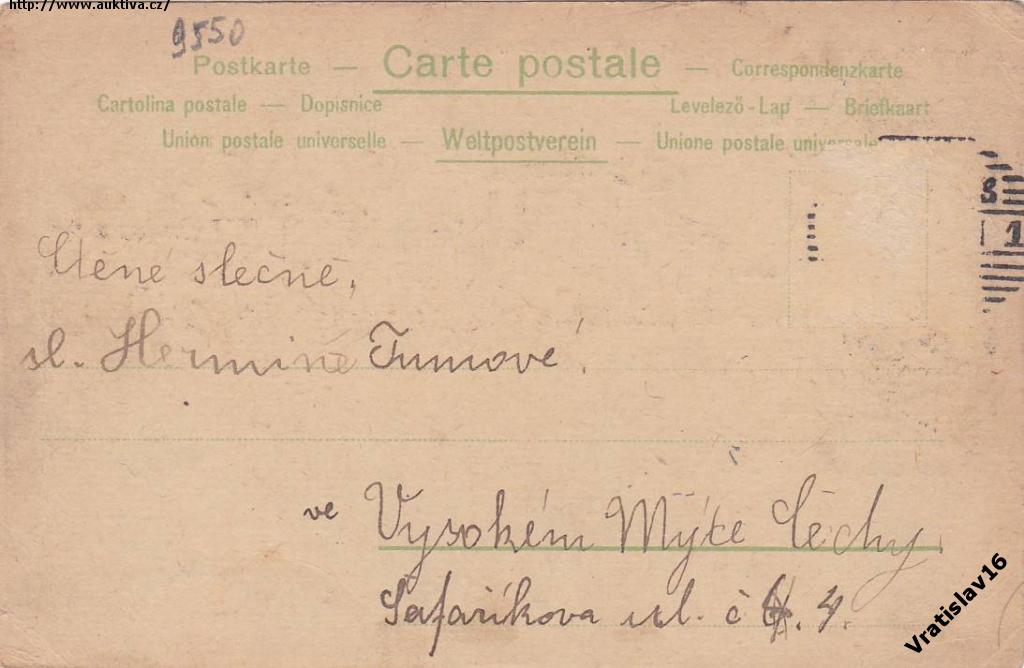 http://www.auktiva.cz/
9550
Postkarte — Carte postale — Correspondenzkarte
Cartolina postale — Dopisnice Levelező-Lap — Briefkaart
Union postale universelle — Weltpostverein — Unione postale universale
8
1
Ctěné slečně,
sl. Hermině Tumové.
ve Vysokém Mýtě Čechy.
Šafaříkova ul. č 4.
Vratislav16